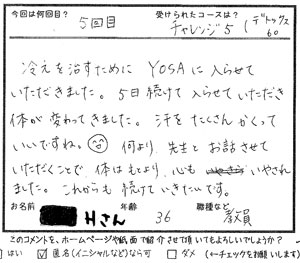 今回は何回目?
5回目
受けられたコースは?
チャレンジ5 (デトックス60
冷えを治すために YOSAに入らせて
いただきました。5日続けて入らせていただき
体が変わってきました。汗をたくさんかくって
いいですね。何より、先生とお話させて
いただくことで、体はもとより、心も いやされ
ました。これからも続けていきたいです。
お名前 Hさん 年齢 36 職種など 教員
このコメントを、ホームページや紙面で紹介させて頂いてもよろしいでしょうか?
はい ☑ 匿名(イニシャルなど)なら可 □ ダメ (←チェックをお願いします)